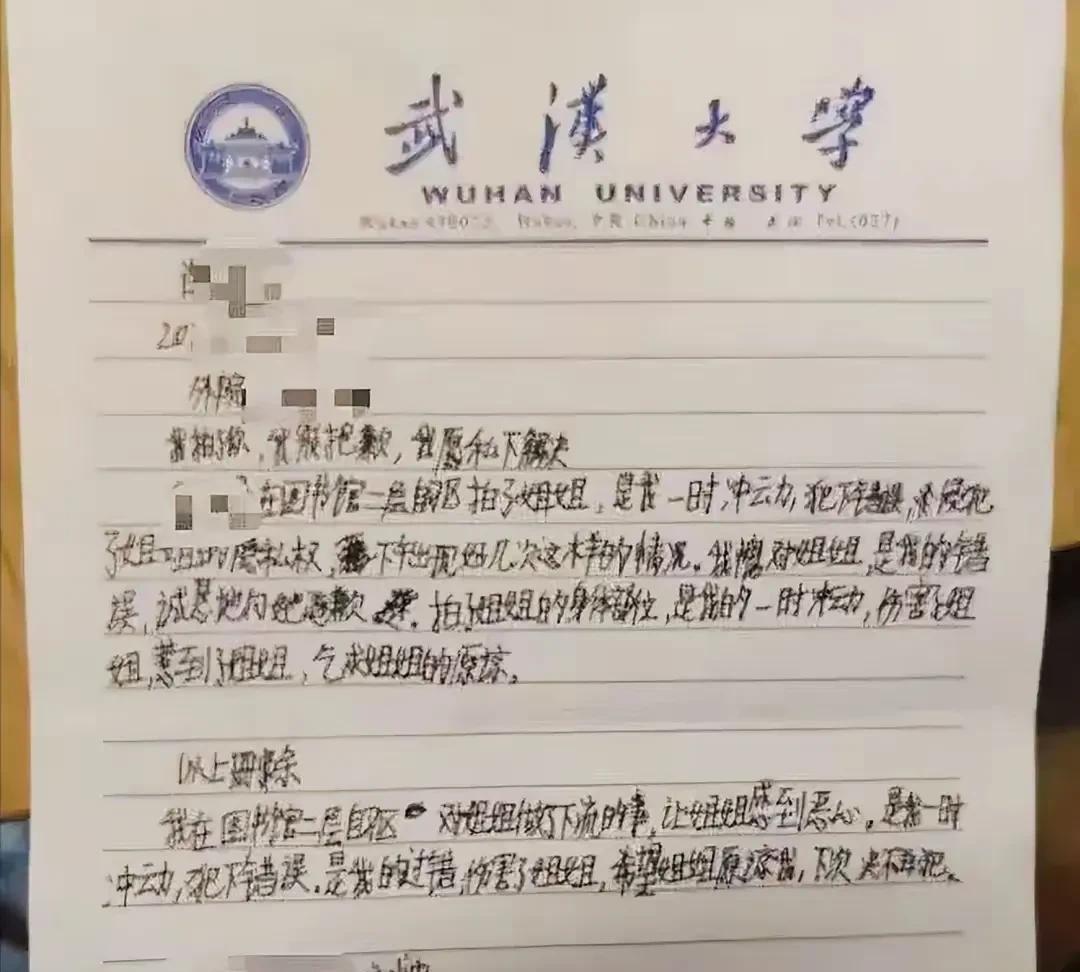 武漢大學
WUHAN UNIVERSITY
20
外院
我拍了你，我很抱歉，我愿私下解决
在图书馆二层自习区拍了姐姐，是我一时冲动，犯下错误，侵犯
了姐姐的隐私权，下午出现好几次这样的情况。我对姐姐，是我的错
误，诚恳地向她道歉。拍了姐姐的身体部位，是我的一时冲动，伤害了姐
姐，惹到了姐姐，乞求姐姐的原谅。
以上删除
我在图书馆二层自习区对姐姐做了下流的事，让姐姐感到恶心。是我一时
冲动，犯下错误。是我的过错，伤害了姐姐，希望姐姐原谅我，下次决不再犯。